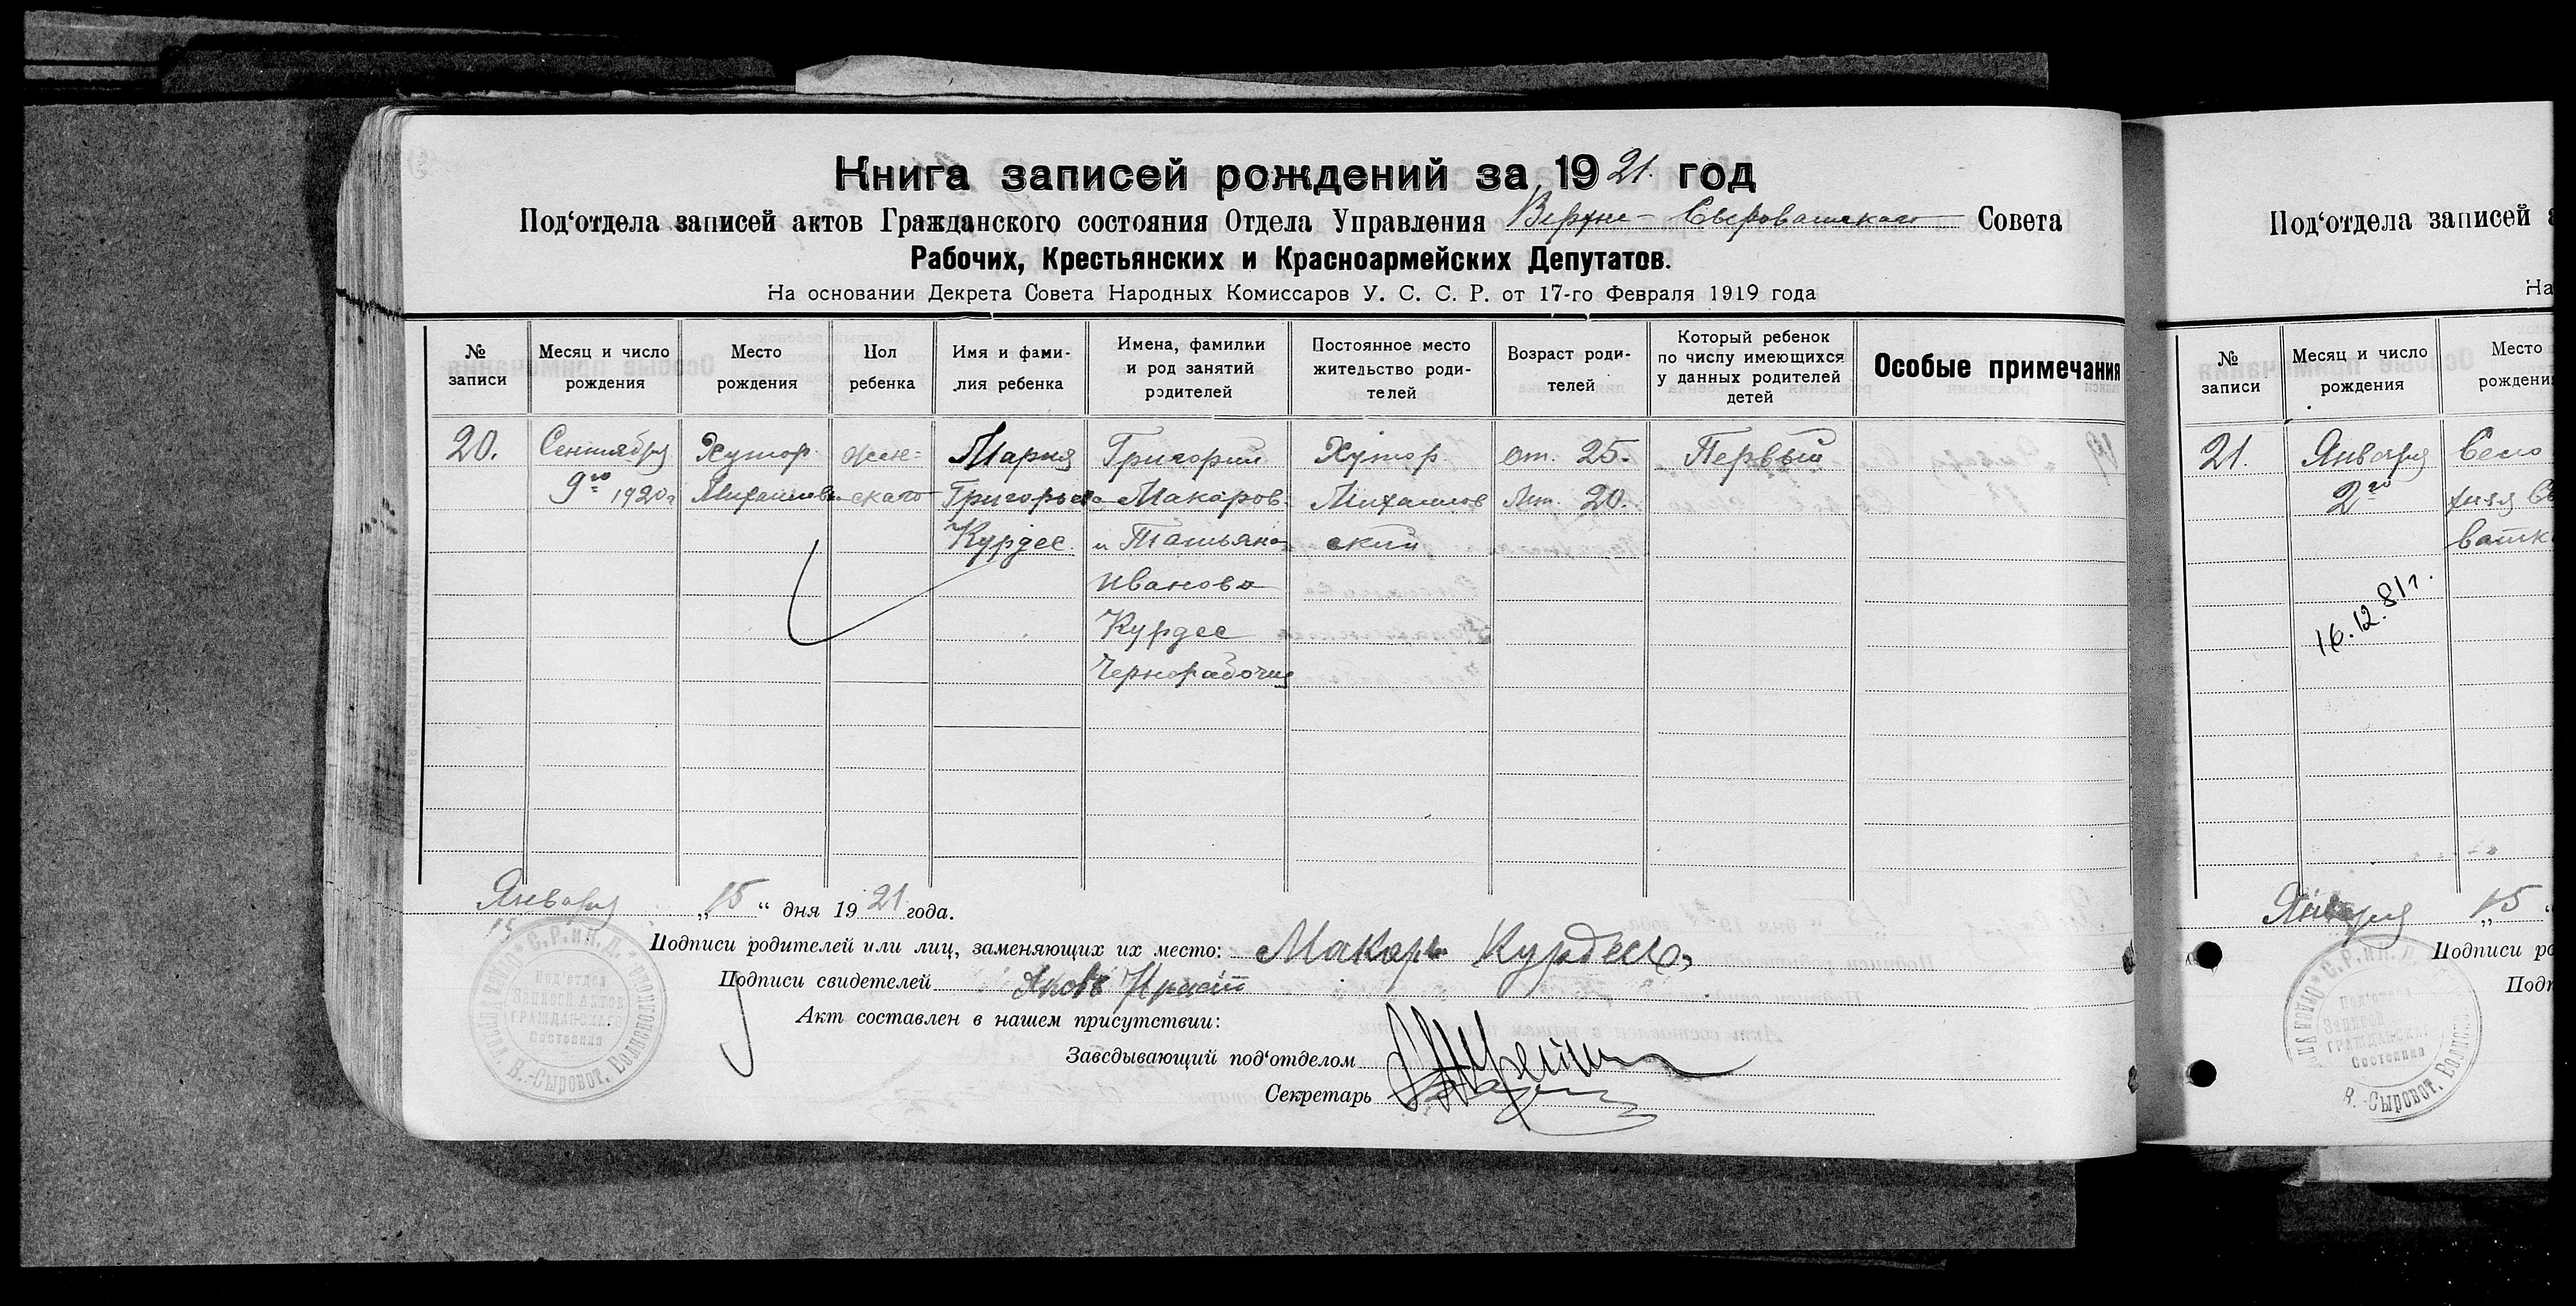 Книга записей рождений за 1921 год
Под‘отдела записей актов Гражданского состояния Отдела Управления Верхне-Сыроватского Совета
Рабочих, Крестьянских и Красноармейских Депутатов.
На основании Декрета Совета Народных Комиссаров У. С. С. Р. от 17-го Февраля 1919 года
№ записи
Месяц и число рождения
Место рождения
Пол ребенка
Имя и фами-
лия ребенка
Имена, фамилии
и род занятий
родителей
Постоянное место
жительство роди-
телей
Возраст роди-
телей
Который ребенок
по числу имеющихся
у данных родителей
детей
Особые примечания
20.
Сентября
9го 1920 г
Хутор
Михайловс
жен-
ского
Мария
Григорьева
Курдес
Григорий
Макаров
и Татьяна
Иванова
Курдес
Чернорабочий
Хутор
Михайлов
ский
от. 25.
Мт. 20.
Первый
Января „15“ дня 1921 года.
15
Подписи родителей или лиц, заменяющих их место: Макар Курдес
Подписи свидетелей Яков
Акт составлен в нашем присутствии:
Заведывающий под‘отделом
Секретарь
С.Р.иП.Д.
Под‘отдел
Записей Актов
ГРАЖДАНСКАГО
Состояния
В.-Сыроват. Волисполком
Под‘отдела записей
На
№ записи
Месяц и число
рождения
Место
рождения
21.
Января
2го
Село
хняя Сы
ватк
16.12.81г.
Января „15
Подписи ро
Подп
С.Р.иП.Д.
Под‘отдел
Записей
ГРАЖДАНСКАГО
Состояния
В.-Сыроват. Волиспол